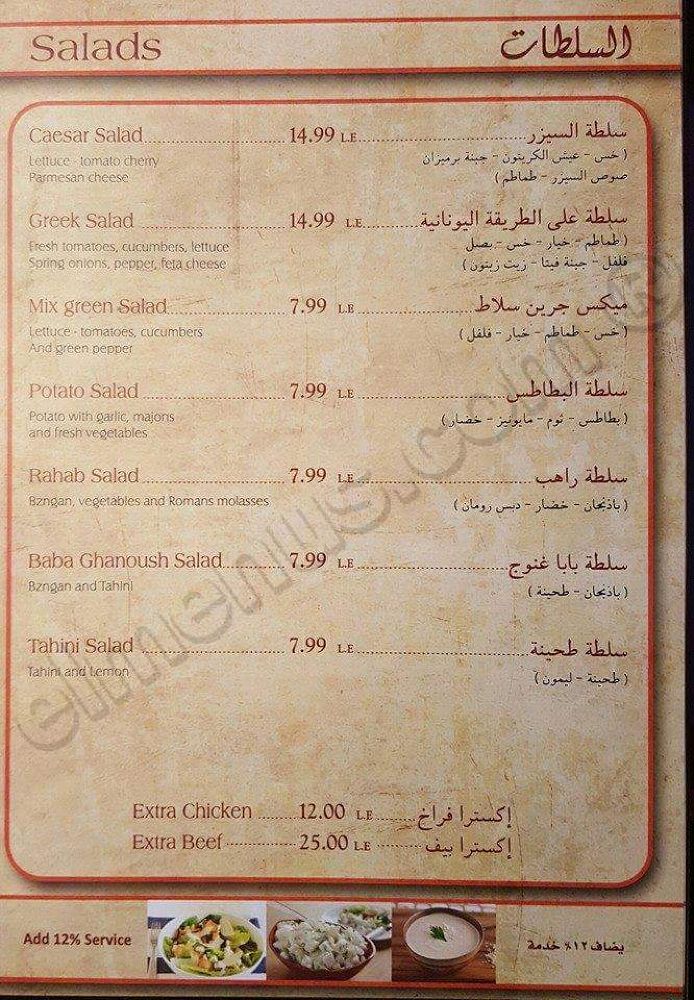 Salads السلطات
Caesar Salad 14.99 L.E سلطة السيزر
Lettuce - tomato cherry
Parmesan cheese
( خس - عيش الكريتون - جبنة برميزان
صوص السيزر - طماطم )
Greek Salad 14.99 L.E سلطة على الطريقة اليونانية
Fresh tomatoes, cucumbers, lettuce
Spring onions, pepper, feta cheese
( طماطم - خيار - خس - بصل
فلفل - جبنة فيتا - زيت زيتون )
Mix green Salad 7.99 L.E ميكس جرين سلاط
Lettuce - tomatoes, cucumbers
And green pepper
( خس - طماطم - خيار - فلفل )
Potato Salad 7.99 L.E سلطة البطاطس
Potato with garlic, majons
and fresh vegetables
( بطاطس - ثوم - مايونيز - خضار )
Rahab Salad 7.99 L.E سلطة راهب
Bzngan, vegetables and Romans molasses
( باذنجان - خضار - دبس رومان )
Baba Ghanoush Salad 7.99 L.E سلطة بابا غنوج
Bzngan and Tahini
( باذنجان - طحينة )
Tahini Salad 7.99 L.E سلطة طحينة
Tahini and Lemon
( طحينة - ليمون )
Extra Chicken 12.00 L.E إكسترا فراخ
Extra Beef 25.00 L.E إكسترا بيف
Add 12% Service يضاف ١٢٪ خدمة
elmenus.com ®